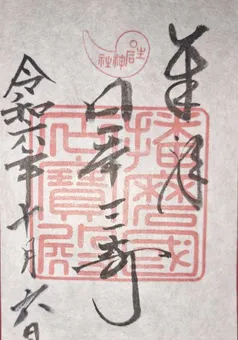 生石神社
奉拝
播磨國
日本三奇
石寶殿
令和六年十月六日